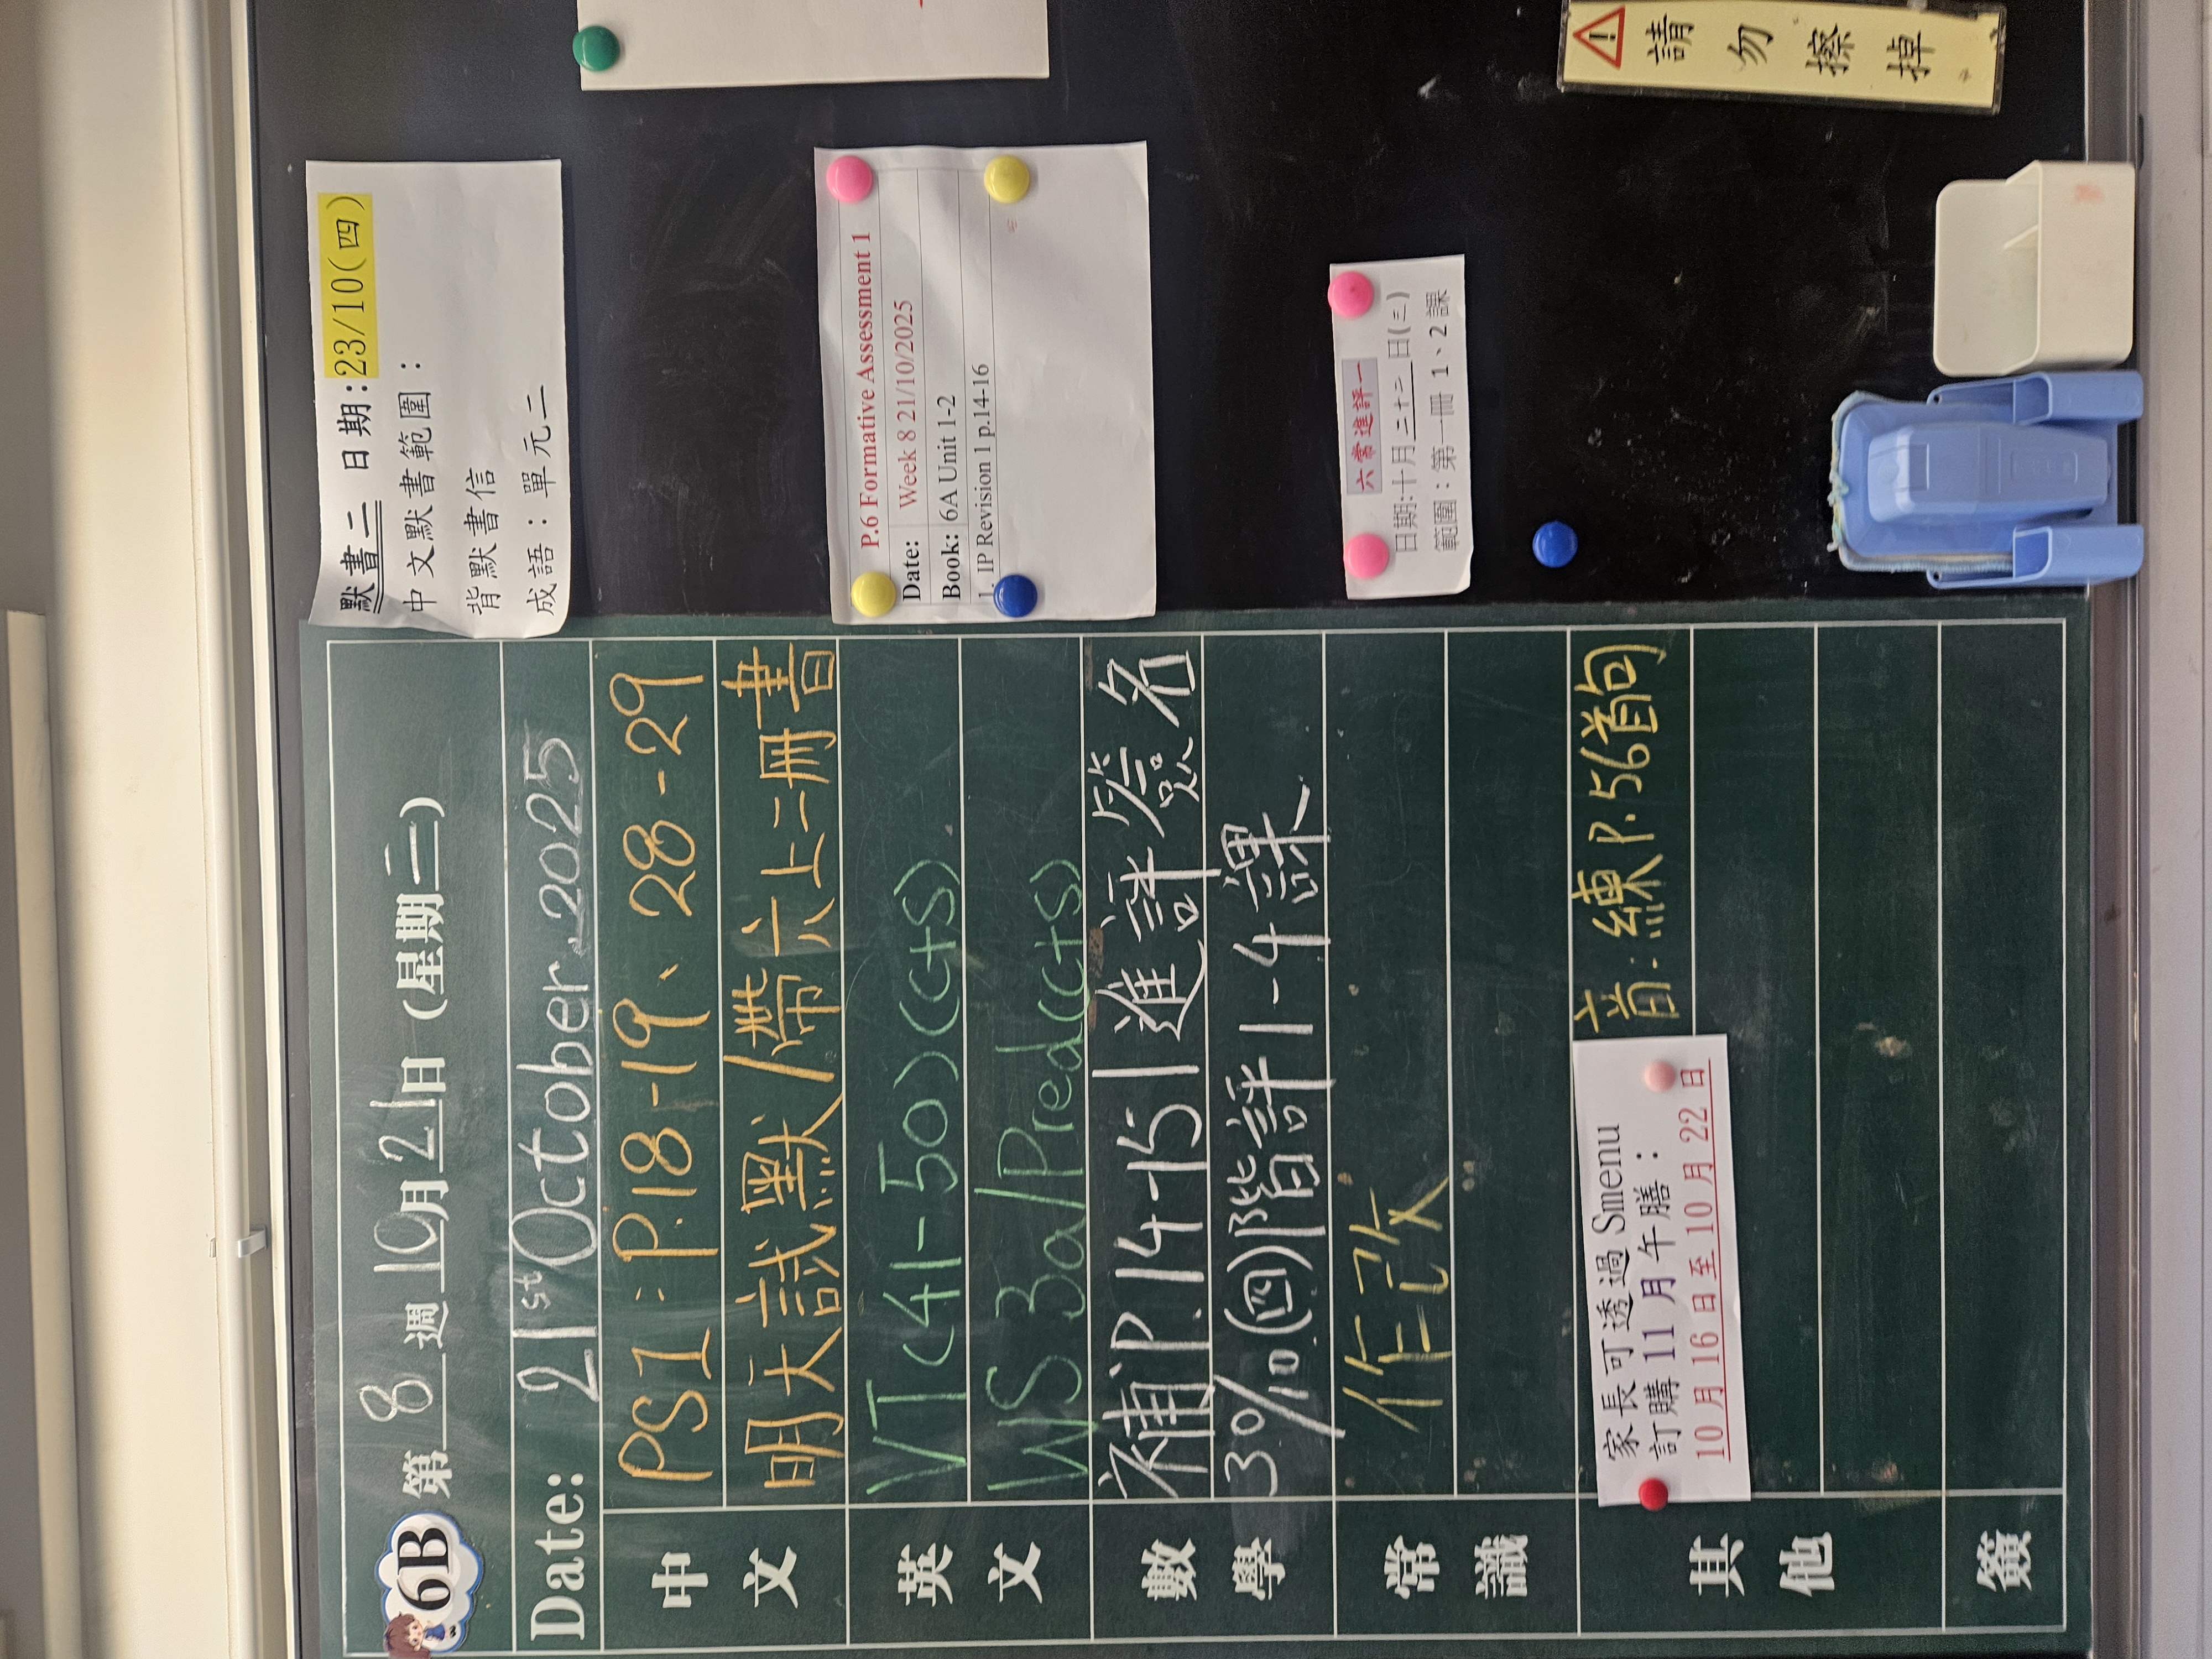 6B 第 8 週 10 月 21 日 (星期二)
Date: 21st October, 2025
中文
PS1 : P.18-19、28-29
明天試默/帶六上二冊書
英文
VT (41-50) (C+S)
WS 3a/Pred(C+S)
數學
補P.14-15 | 進評簽名
30/10(四)階評1-4課
常識
作改
其他
家長可透過 Smenu
訂購 11 月午膳：
10 月 16 日至 10 月 22 日
音:練P.56首句
簽
默書二 日期:23/10(四)
中文默書範圍：
背默書信
成語：單元二
P.6 Formative Assessment 1
Date: Week 8 21/10/2025
Book: 6A Unit 1-2
1. IP Revision 1 p.14-16
六常進評一
日期:十月二十二日(三)
範圍：第一冊 1、2 課
請勿擦掉